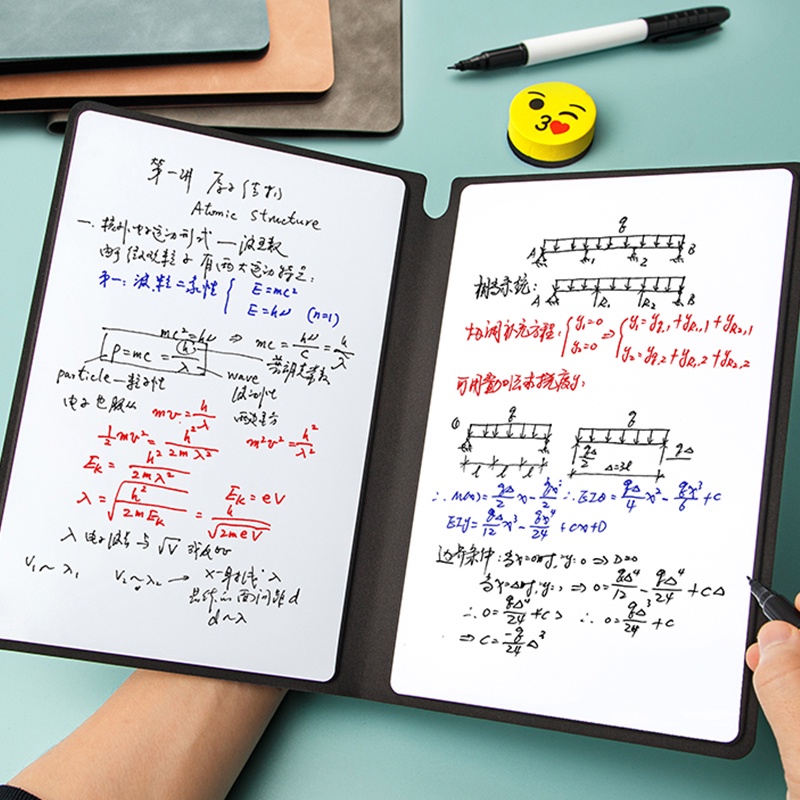 第一讲 原子结构
Atomic Structure
一、核外电子运动形式 — 波函数
两大运动特点:
第一:波粒二象性 { E=mc²
E=hν (n=1)
mc²=hν ⇒ mc = hν/c = h/λ
P=mc=(h)/λ
普朗克常数
particle—粒子性
wave
波动性
电子也服从 mv=h/λ
½mv²=h²/2mλ² m²v²=h²/λ²
E_K=h²/2mλ²
λ=√(h²/2mE_K) = h/√(2meV) E_K=eV
λ 电子波长与√V 成反比
V₁~λ₁ V₂~λ₂ → X-射线:λ
晶体的面间距d
d~λ
q
A 1 2 B
相当系统: A R₁ R₂ B
协调补充方程: { y₁=0 y₂=0 ⇒ { y₁=y_q,1+y_R1,1+y_R2,1
y₂=y_q,2+y_R1,2+y_R2,2
可用叠加法求挠度y:
① q q
l l l qΔ/2 Δ=3l qΔ
∴M(x)=qΔ/2 x-qx²/2 ∴EIθ=qΔ/4 x²-q/6 x³+C
EIy=qΔ/12 x³-qx⁴/24+Cx+D
边界条件:当x=0时,y=0 ⇒ D=0
当x=Δ时,y=0 ⇒ 0=qΔ⁴/12-qΔ⁴/24+CΔ
∴0=qΔ⁴/24+CΔ ∴0=qΔ³/24+C
⇒C=-q/24 Δ³